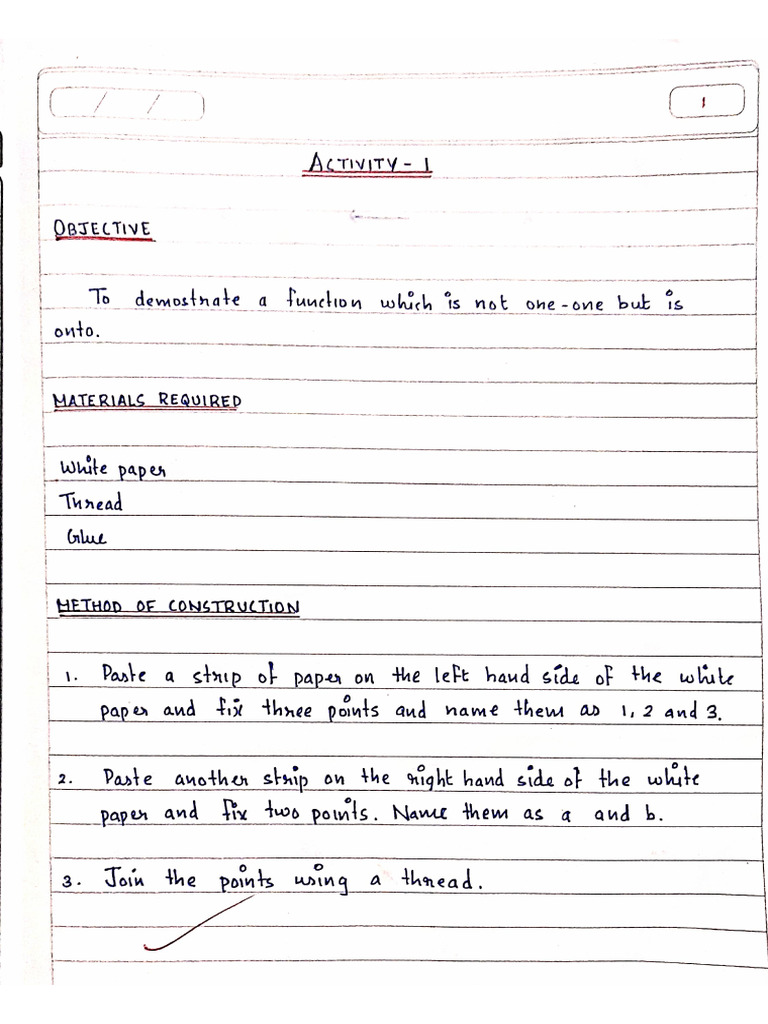 / /
1
ACTIVITY - 1
OBJECTIVE
To demostrate a function which is not one-one but is
onto.
MATERIALS REQUIRED
White paper
Thread
Glue
METHOD OF CONSTRUCTION
1. Paste a strip of paper on the left hand side of the white
paper and fix three points and name them as 1, 2 and 3.
2. Paste another strip on the right hand side of the white
paper and fix two points. Name them as a and b.
3. Join the points using a thread.